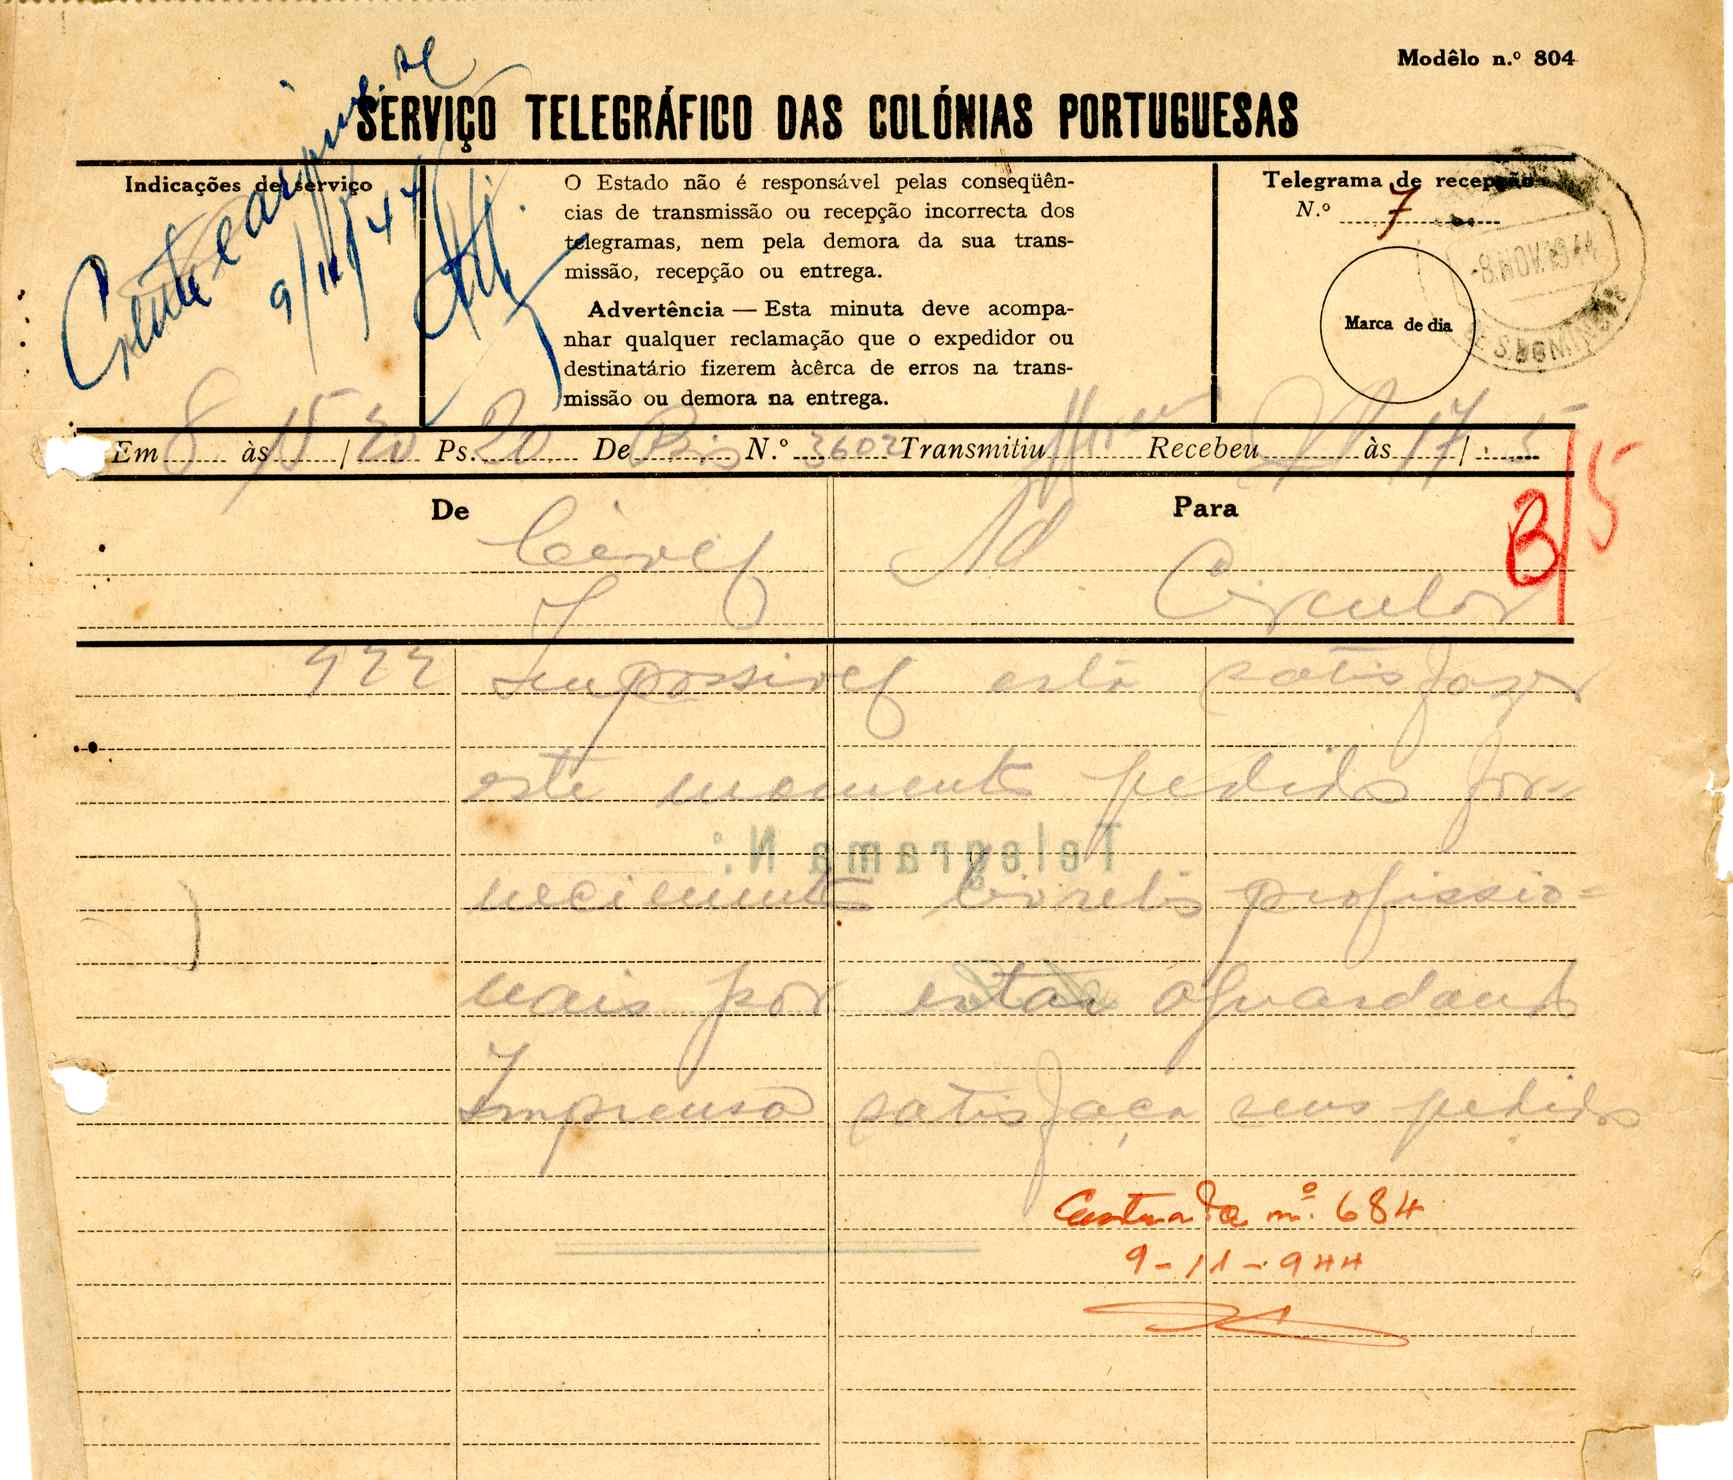 Modêlo n.º 804
SERVIÇO TELEGRÁFICO DAS COLÓNIAS PORTUGUESAS
Indicações de serviço
Ciente e arquive-se
9/11/44
O Estado não é responsável pelas conseqüên-
cias de transmissão ou recepção incorrecta dos
telegramas, nem pela demora da sua trans-
missão, recepção ou entrega.
Advertência — Esta minuta deve acompa-
nhar qualquer reclamação que o expedidor ou
destinatário fizerem àcêrca de erros na trans-
missão ou demora na entrega.
Telegrama de recepção
N.º 7
Marca de dia
-8.NOV.1944
S. DOMINGOS
Em 8 às 15/30 Ps. 20 De Bis N.º 3602 Transmitiu Recebeu às 17/5
De
Para
B/5
Civel
Ad
Circular
977 Impossivel está satisfazer
este momento pedido for-
Telegrama N.º
necimento livretes profissio-
nais por estar aguardando
Imprensa satisfaça seus pedidos
Capturada n.º 684
9-11-944